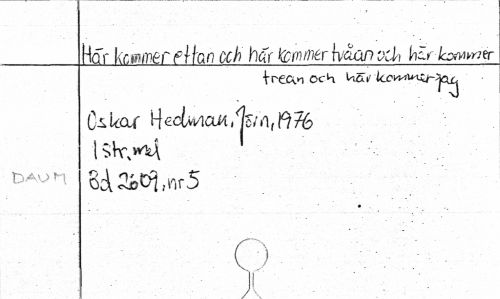 Här kommer ettan och här kommer tvåan och här kommer
trean och här kommer jag
Oskar Hedman, Jörn, 1976
1 str, mel
DAUM Bd 2609, nr 5